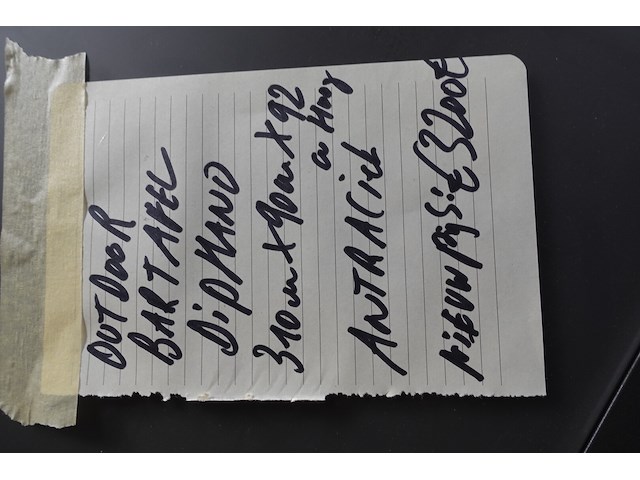 OUTDOOR
BARTAFEL
DiPHANO
310 cm X 90 cm X 92
cm Hoog
ANTRACiet
NiEUW PRijS: € 3200€